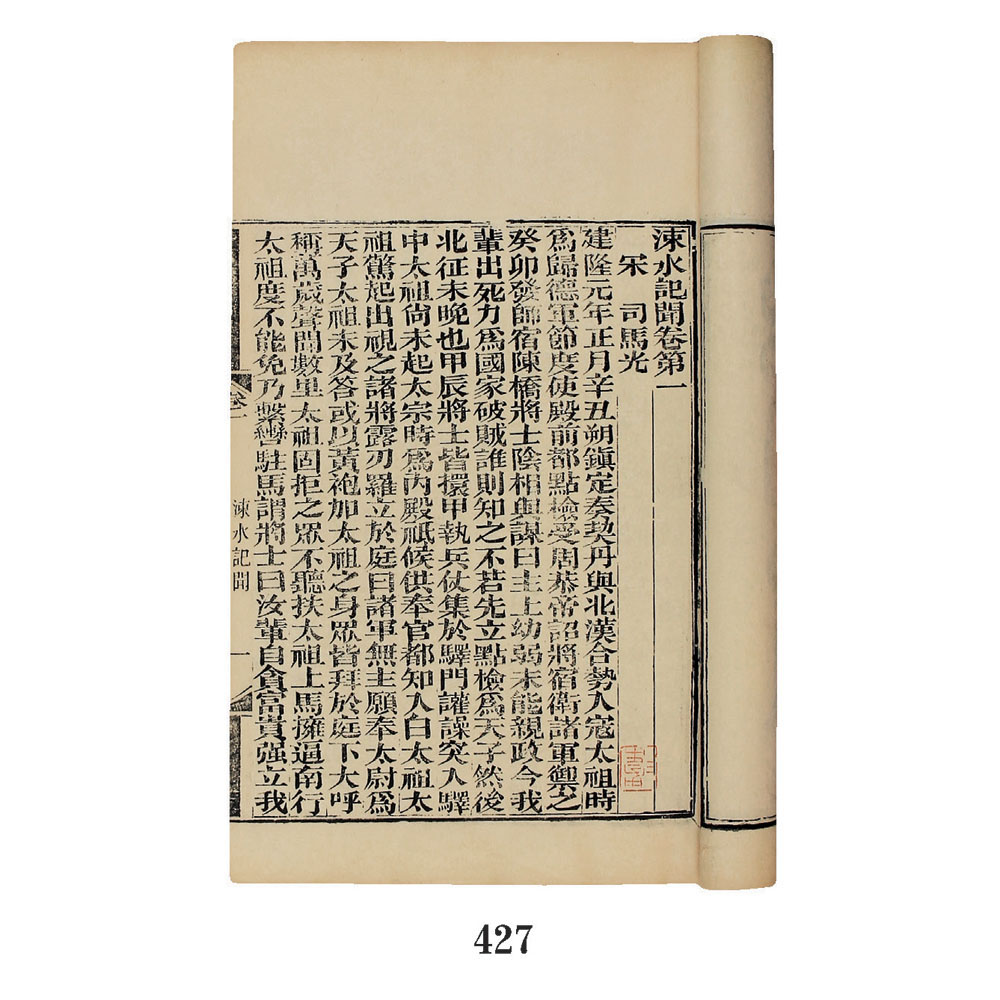 涑水記聞卷第一
宋　司馬光
建隆元年正月辛丑朔鎭定奏契丹與北漢合勢入寇太祖時
爲歸德軍節度使殿前都點檢受周恭帝詔將宿衛諸軍禦之
癸卯發師宿陳橋將士陰相與謀曰主上幼弱未能親政今我
輩出死力爲國家破賊誰則知之不若先立點檢爲天子然後
北征未晚也甲辰將士皆擐甲執兵仗集於驛門讙譟突入驛
中太祖尚未起太宗時爲內殿祗候供奉官都知入白太祖太
祖驚起出視之諸將露刃羅立於庭曰諸軍無主願奉太尉爲
天子太祖未及答或以黃袍加太祖之身眾皆拜於庭下大呼
稱萬歲聲聞數里太祖固拒之眾不聽扶太祖上馬擁逼南行
太祖度不能免乃繫轡駐馬謂將士曰汝輩自貪富貴强立我
涑水記聞
一
427